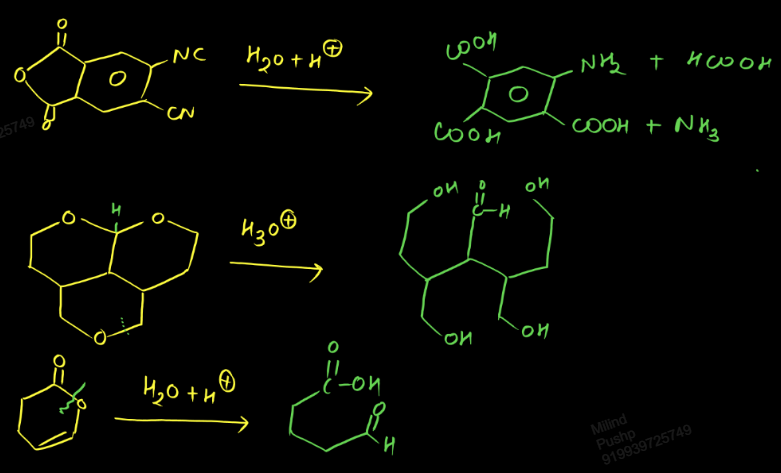 O
O
O
O
NC
CN
H2O + H⊕
COOH
COOH
NH2 + HCOOH
COOH + NH3
25749
O
H
O
O
H3O⊕
OH
O
C-H
OH
OH
OH
O
O
H2O + H⊕
O
C-OH
O
H
Milind
Pushp
919939725749